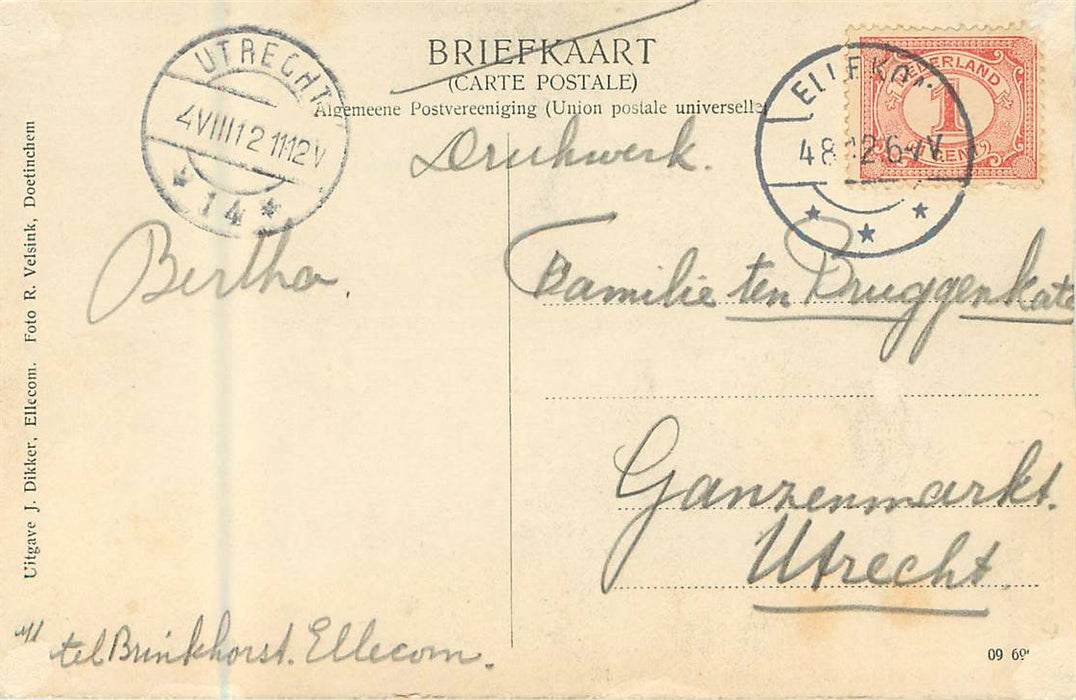 BRIEFKAART
(CARTE POSTALE)
Algemeene Postvereeniging (Union postale universelle)
UTRECHT
4 VIII 12 11-12V
* 14 *
ELLEKOM
4 8 12 6-7V
NEDERLAND
1
CENT
Drukwerk.
Bertha.
Familie ten Bruggenkate
Ganzenmarkt.
Utrecht.
tel Brinkhorst. Ellecom.
Uitgave J. Dikker, Ellecom. Foto R. Velsink, Doetinchem
09 69